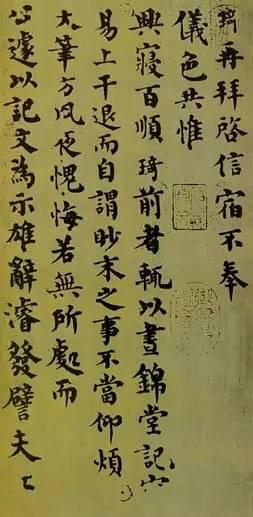 琦再拜啓信宿不奉
儀色共惟
興寢百順琦前者輒以晝錦堂記容
易上干退而自謂眇末之事不當仰煩
大筆方夙夜愧悔若無所處而
公遽以記文為示雄辭濬發譬夫江